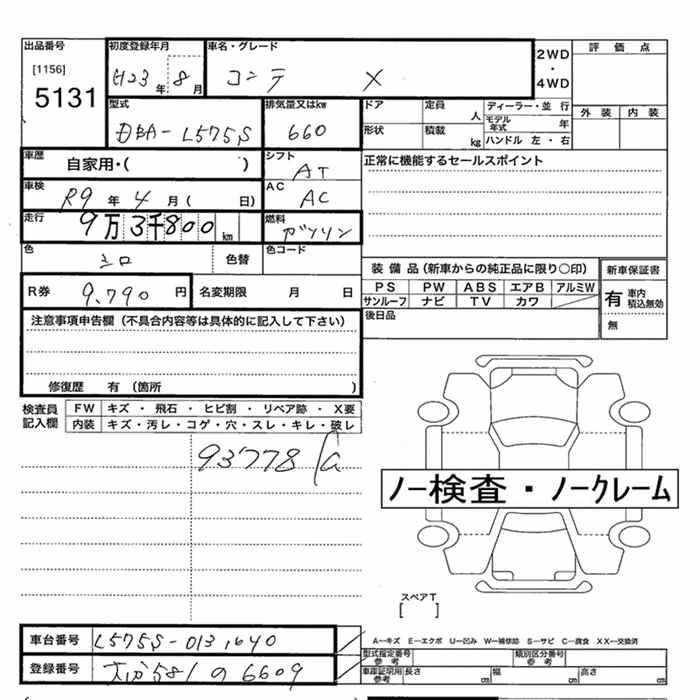 出品番号
[1156]
5131
初度登録年月
H23年 8月
車名・グレード
コンテ X
2WD
・
4WD
評価点
外装 内装
型式
DBA-L575S
排気量又はkw
660
ドア
定員 人
ディーラー・並行
モデル年式 年
形状
積載 kg
ハンドル 左・右
車歴
自家用・( )
シフト
AT
正常に機能するセールスポイント
車検
R9年 4月( 日)
AC
AC
走行
9万3千800km
燃料
ガソリン
色
シロ
色替
色コード
R券
9,790円
名変期限 月 日
装備品(新車からの純正品に限り○印)
PS PW ABS エアB アルミW
サンルーフ ナビ TV カワ
後日品
新車保証書
有 車内積込無効
無
注意事項申告欄(不具合内容等は具体的に記入して下さい)
修復歴 有(箇所 )
検査員記入欄
FW キズ・飛石・ヒビ割・リペア跡・X要
内装 キズ・汚レ・コゲ・穴・スレ・キレ・破レ
93778
ノー検査・ノークレーム
スペアT
[ ]
車台番号
L575S-0131640
登録番号
大分581の6609
A-キズ E-エクボ U-凹み W-補修跡 S-サビ C-腐食 XX-交換済
型式指定番号 参考
類別区分番号 参考
車庫証明用 参考 長さ cm 幅 cm 高さ cm